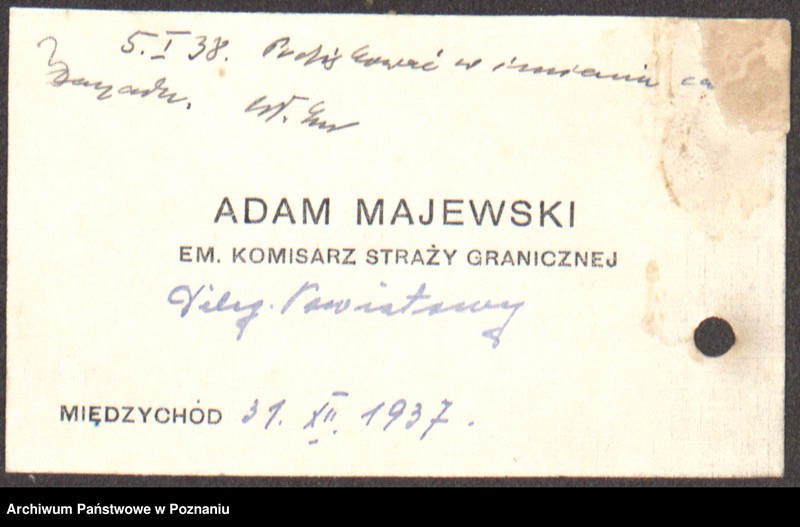 5. I 38. Podziękować w imieniu
Zarządu.
ADAM MAJEWSKI
EM. KOMISARZ STRAŻY GRANICZNEJ
Deleg. Powiatowy
MIĘDZYCHÓD 31. XII. 1937.
Archiwum Państwowe w Poznaniu